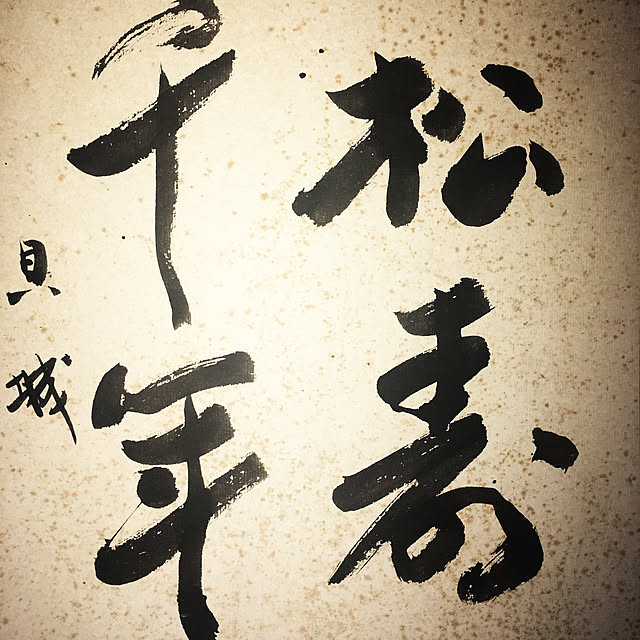 松寿
千年
貝城